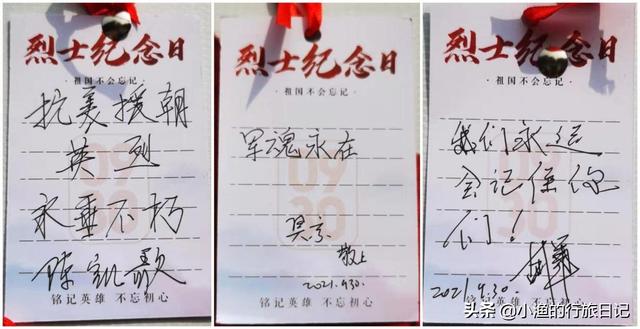 烈士纪念日
·祖国不会忘记·
抗美援朝
英烈
永垂不朽
陈凯歌
铭记英雄 不忘初心
烈士纪念日
·祖国不会忘记·
09
30
军魂永在
吴京
敬上
2021.9.30.
铭记英雄 不忘初心
烈士纪念日
·祖国不会忘记·
09
30
我们永远
会记住你
们！
2021.9.30.
头条 @小潼的行旅日记